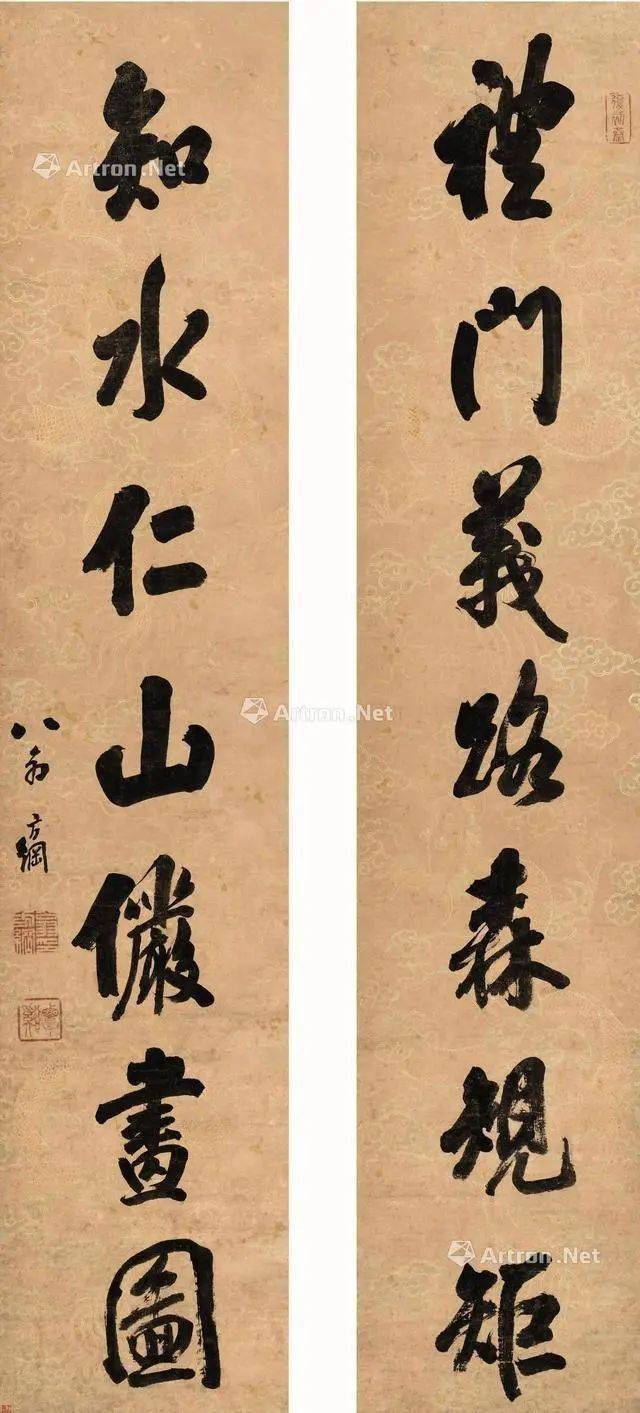 禮門義路森規矩
知水仁山儼畫圖
八翁方綱
Artron.Net
Artron.Net
Artron.Net